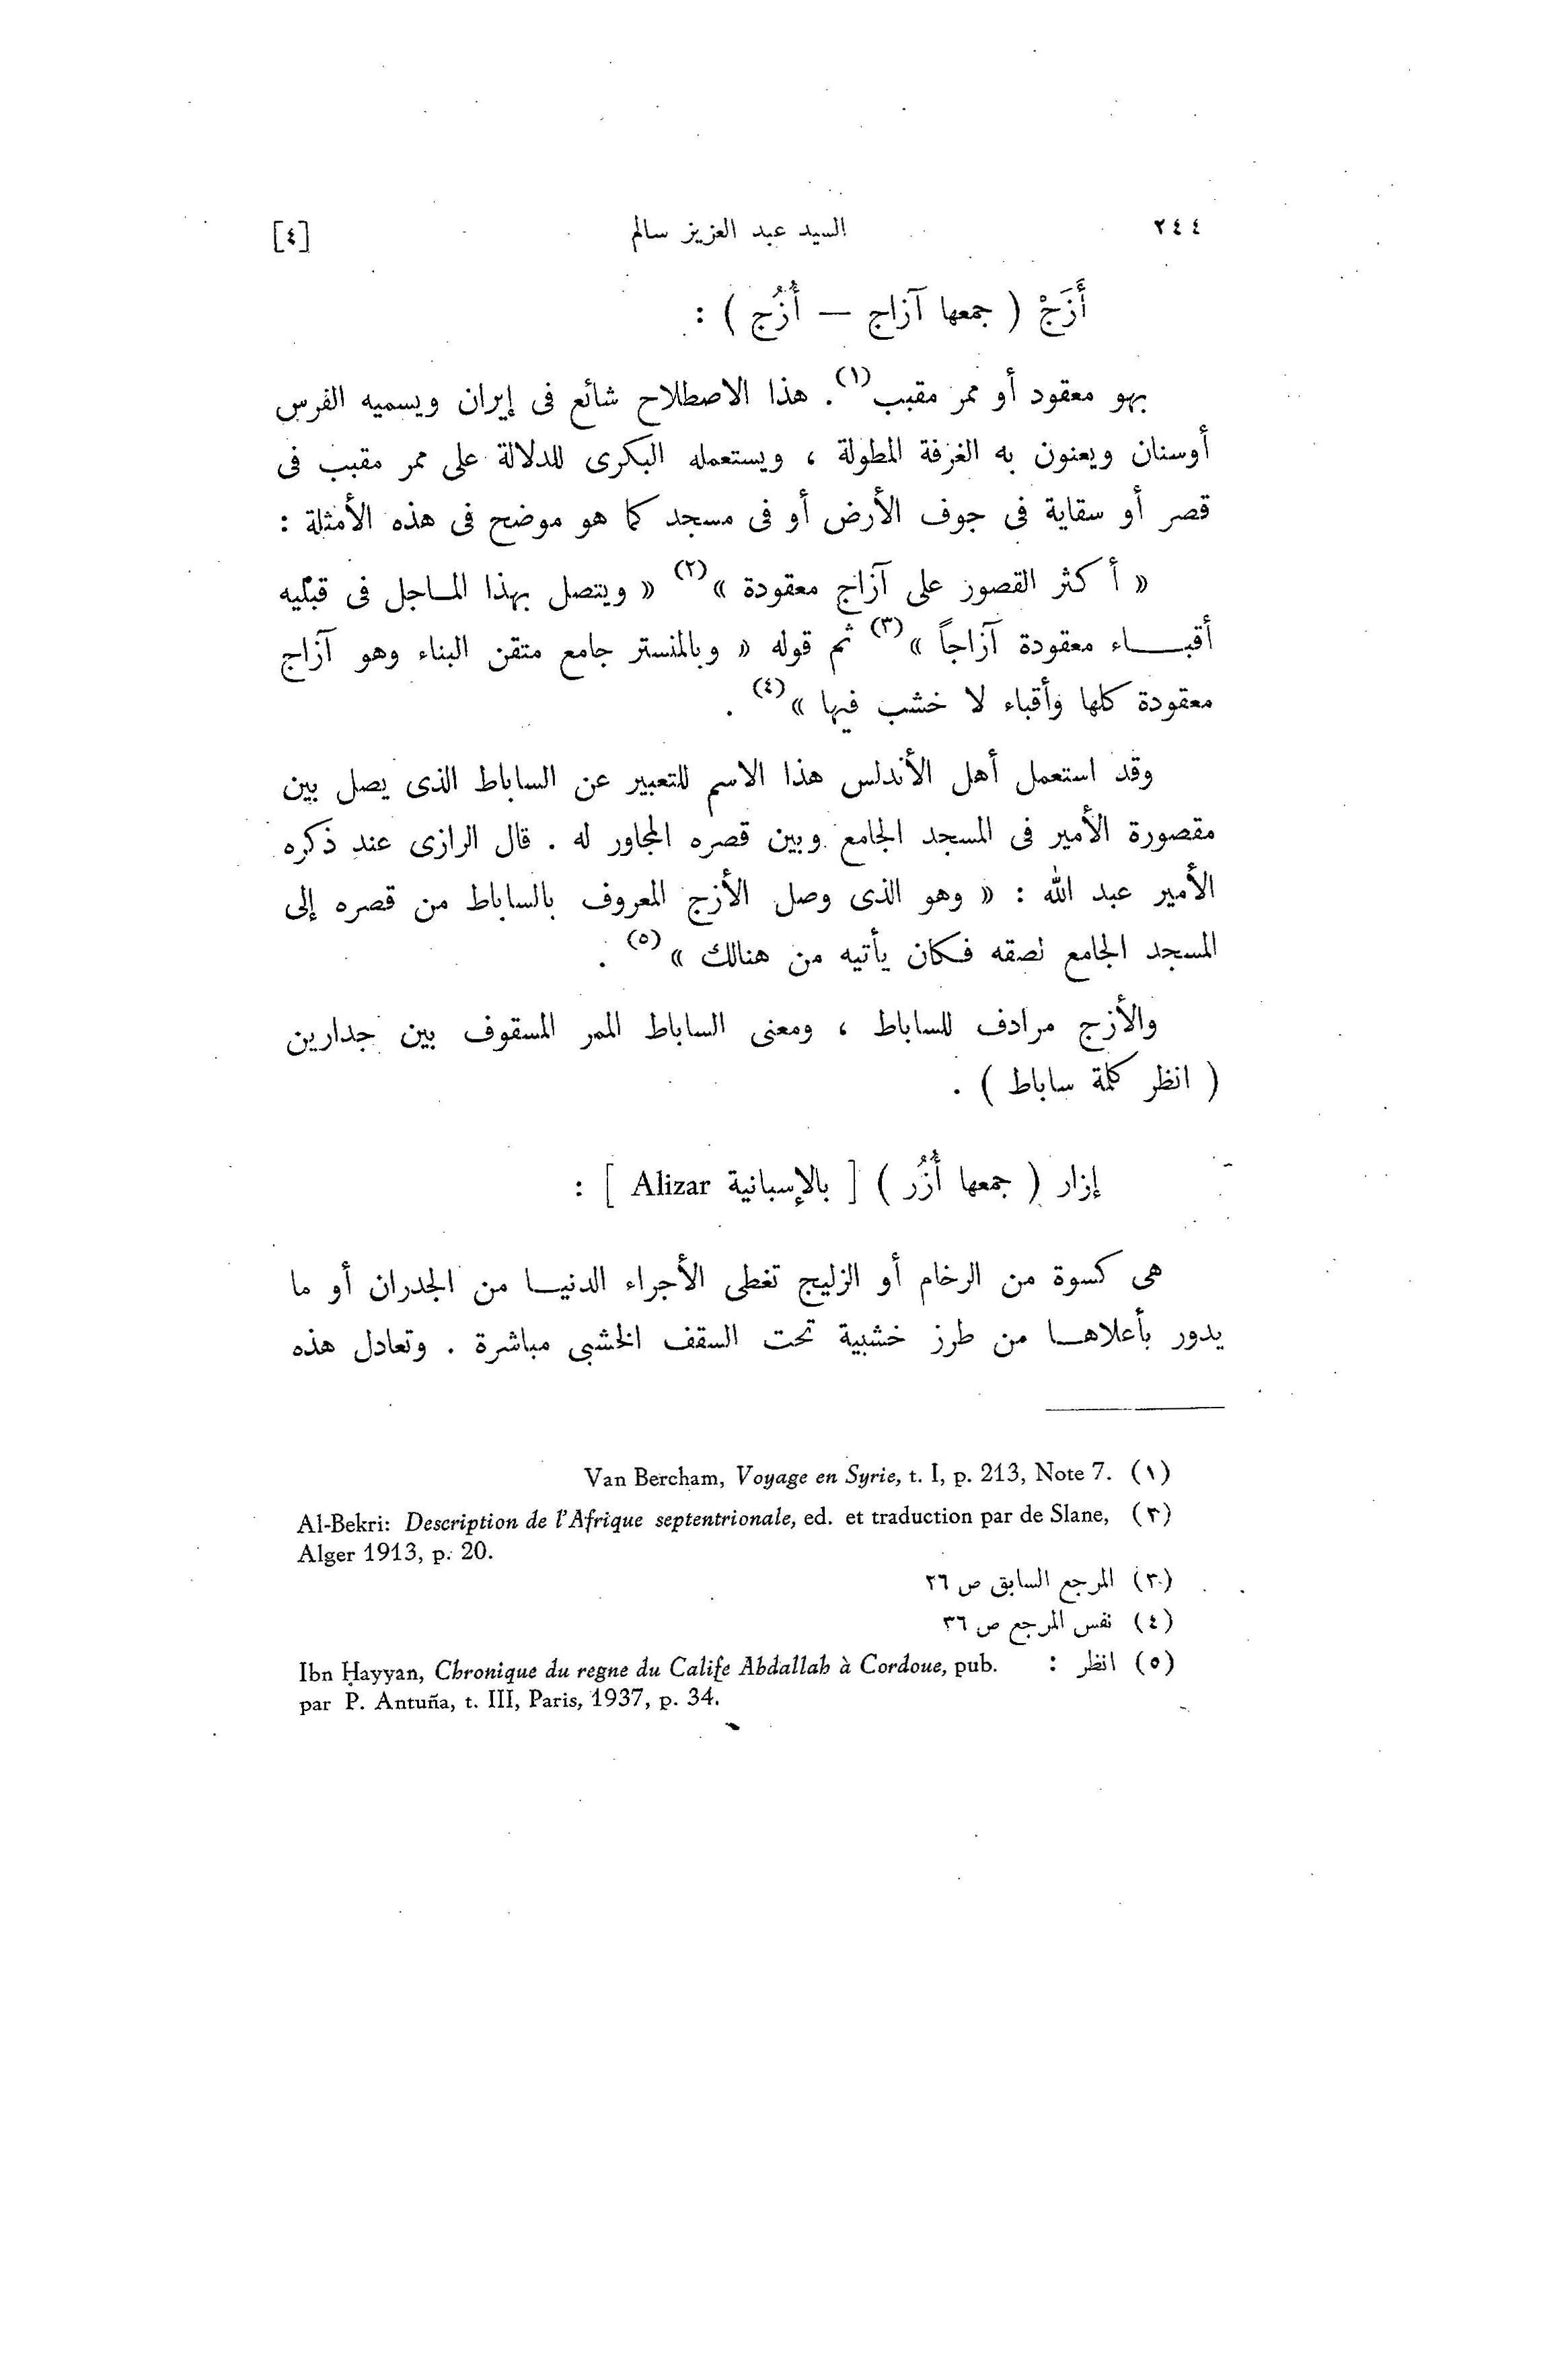 ٢٤٤ السيد عبد العزيز سالم [٤]
أَزَجْ ( جمعها آزاج — أُزُج ) :
بهو معقود أو ممر مقبب(١). هذا الاصطلاح شائع فى إيران ويسميه الفرس
أوسنان ويعنون به الغرفة المطولة ، ويستعمله البكرى للدلالة على ممر مقبب فى
قصر أو سقاية فى جوف الأرض أو فى مسجد كما هو موضح فى هذه الأمثلة :
« أكثر القصور على آزاج معقودة »(٢) « ويتصل بهذا المـاجل فى قبليه
أقبـــاء معقودة آزاجاً »(٣) ثم قوله « وبالمنستر جامع متقن البناء وهو آزاج
معقودة كلها وأقباء لا خشب فيها »(٤) .
وقد استعمل أهل الأندلس هذا الاسم للتعبير عن الساباط الذى يصل بين
مقصورة الأمير فى المسجد الجامع وبين قصره المجاور له . قال الرازى عند ذكره
الأمير عبد الله : « وهو الذى وصل الأزج المعروف بالساباط من قصره إلى
المسجد الجامع لصقه فكان يأتيه من هنالك »(٥) .
والأزج مرادف للساباط ، ومعنى الساباط الممر المسقوف بين جدارين
( انظر كلمة ساباط ) .
إزار ( جمعها أُزُر ) [ بالإسبانية Alizar ] :
هى كسوة من الرخام أو الزليج تغطى الأجراء الدنيـا من الجدران أو ما
يدور بأعلاهـا من طرز خشبية تحت السقف الخشبى مباشرة . وتعادل هذه
(١) Van Bercham, Voyage en Syrie, t. I, p. 213, Note 7.
(٢) Al-Bekri: Description de l'Afrique septentrionale, ed. et traduction par de Slane,
Alger 1913, p. 20.
(٣) المرجع السابق ص ٢٦
(٤) نفس المرجع ص ٣٦
(٥) انظر : Ibn Ḥayyan, Chronique du regne du Calife Abdallah à Cordoue, pub.
par P. Antuña, t. III, Paris, 1937, p. 34.